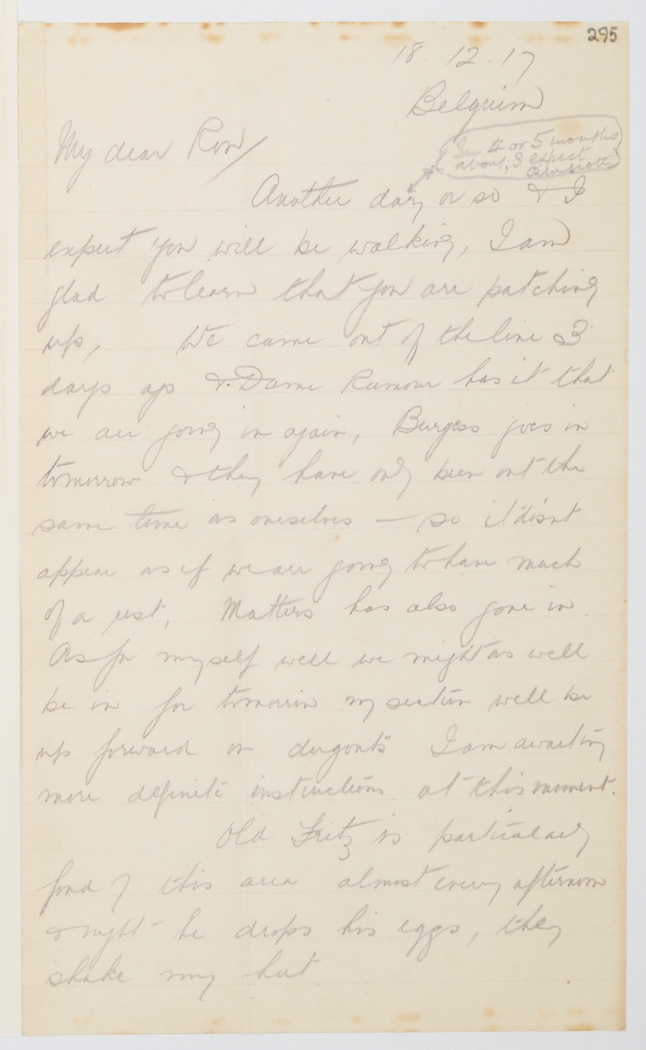 295
18.12.17
Belguim
My dear Ron/
In 4 or 5 months
about, I expect
Another day, or so & I
expect you will be walking, I am
glad to learn that you are patching
up, We came out of the line 3
days ago & Dame Rumour has it that
we are going in again, Burgess goes in
tomorrow & they have only been out the
same time as ourselves — so it dosnt
appear as if we are going to have much
of a rest, Matters has also gone in
As for myself well we might as well
be in for tomorrow my section will be
up forward on dugouts I am awaiting
more definite instructions at this moment.
Old Fritz is particularly
fond of this area almost every afternoon
& night he drops his eggs, they
shake my hut